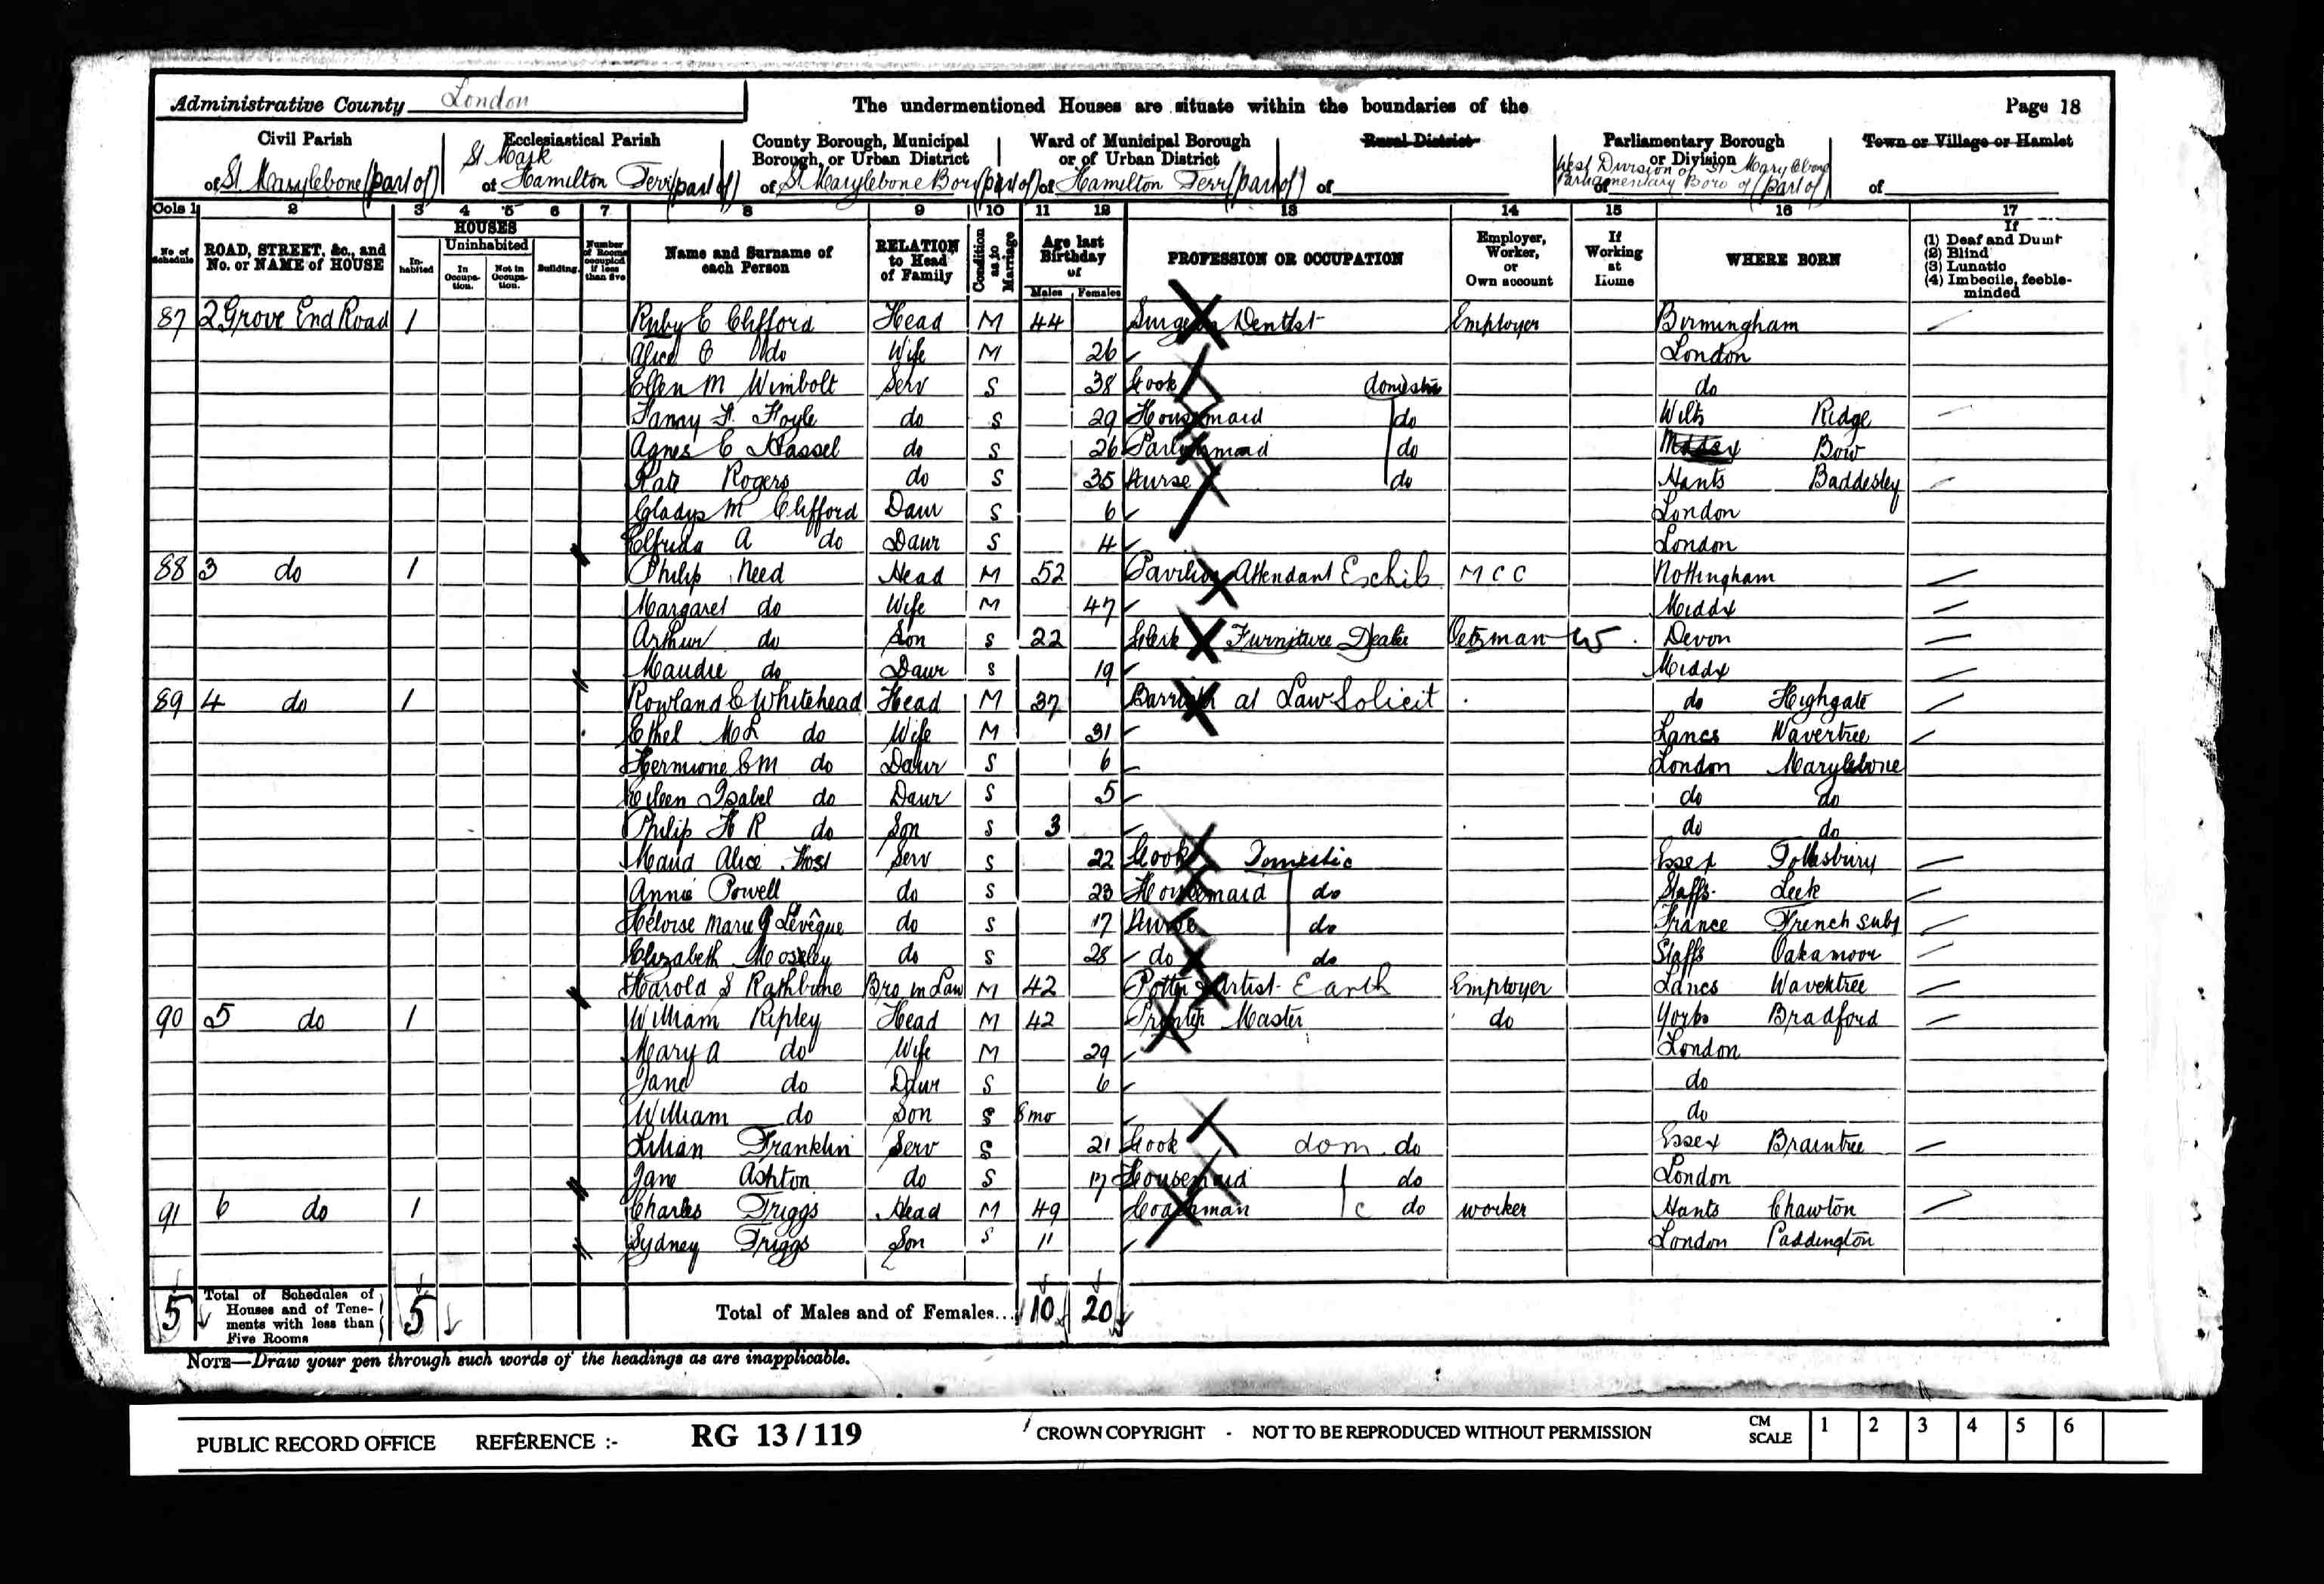 Administrative County London The undermentioned Houses are situate within the boundaries of the Page 18
Civil Parish of St Marylebone (part of)
Ecclesiastical Parish St Mark of Hamilton Terr (part of)
County Borough, Municipal Borough, or Urban District of St Marylebone Boro (part of)
Ward of Municipal Borough or of Urban District of Hamilton Terr (part of)
Rural District of
Parliamentary Borough or Division of West Division of St Marylebone Parliamentary Boro (part of)
Town or Village or Hamlet of
Cols 1 2 3 4 5 6 7 8 9 10 11 12 13 14 15 16 17
No. of Schedule
ROAD, STREET, &c., and No. or NAME of HOUSE
HOUSES
Inhabited
Uninhabited
In Occupation.
Not in Occupation.
Building.
Number of Rooms occupied if less than five
Name and Surname of each Person
RELATION to Head of Family
Condition as to Marriage
Age last Birthday of
Males Females
PROFESSION OR OCCUPATION
Employer, Worker, or Own account
If Working at Home
WHERE BORN
If
(1) Deaf and Dumb
(2) Blind
(3) Lunatic
(4) Imbecile, feeble-minded
87 2 Grove End Road 1 Ruby E Clifford Head M 44 Surgeon Dentist Employer Birmingham
Alice C do Wife M 26 London
Ellen M Wimbolt Serv S 38 Cook domestic do
Fanny F. Foyle do S 29 Housemaid do Wilts Ridge
Agnes E Hassel do S 26 Parlourmaid do Middx Bow
Kate Rogers do S 35 Nurse do Hants Baddesley
Gladys M Clifford Daur S 6 London
Elfrida A do Daur S 4 London
88 3 do 1 Philip Need Head M 52 Pavilion Attendant Exhib M C C Nottingham
Margaret do Wife M 47 Middx
Arthur do Son S 22 Clerk Furniture Dealer Oetzman W Devon
Maudie do Daur S 19 Middx
89 4 do 1 Rowland E Whitehead Head M 37 Barrister at Law Solicit do Highgate
Ethel M L do Wife M 31 Lancs Wavertree
Hermione E M do Daur S 6 London Marylebone
Eileen Isabel do Daur S 5 do do
Philip H R do Son S 3 do do
Maud Alice Frost Serv S 22 Cook Domestic Essex Tollesbury
Annie Powell do S 23 Housemaid do Staffs Leek
Héloise Marie G Levêque do S 17 Nurse do France French subj
Elizabeth Moseley do S 28 do do Staffs Oakamoor
Harold S Rathbone Bro in Law M 42 Potter & Artist Earth Employer Lancs Wavertree
90 5 do 1 William Ripley Head M 42 Printer Master do Yorks Bradford
Mary A do Wife M 29 London
Jane do Daur S 6 do
William do Son S 8 mo do
Lilian Franklin Serv S 21 Cook dom. do Essex Braintree
Jane Ashton do S 17 Housemaid do London
91 6 do 1 Charles Triggs Head M 49 Coachman c do worker Hants Chawton
Sydney Triggs Son S 11 London Paddington
5 Total of Schedules of Houses and of Tenements with less than Five Rooms 5 Total of Males and of Females... 10 20
NOTE—Draw your pen through such words of the headings as are inapplicable.
PUBLIC RECORD OFFICE REFERENCE :- RG 13/119 CROWN COPYRIGHT - NOT TO BE REPRODUCED WITHOUT PERMISSION CM SCALE 1 2 3 4 5 6